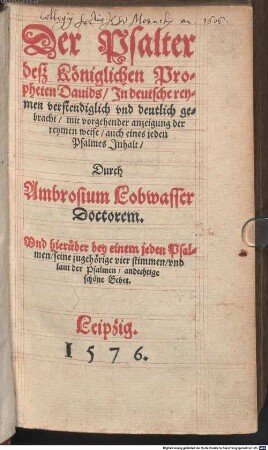 Der Psalter
deß Königlichen Pro-
pheten Dauids/ In deutsche rey-
men verstendiglich vnd deutlich ge-
bracht/ mit vorgehender anzeigung der
reymen weise/ auch eines jeden
Psalmes Inhalt/
Durch
Ambrosium Lobwasser
Doctorem.
Vnd hierüber bey einem jeden Psal-
men/ seine zugehörige vier stimmen/ vnd
laut der Psalmen/ andechtige
schöne Gebet.
Leipzig.
1576.